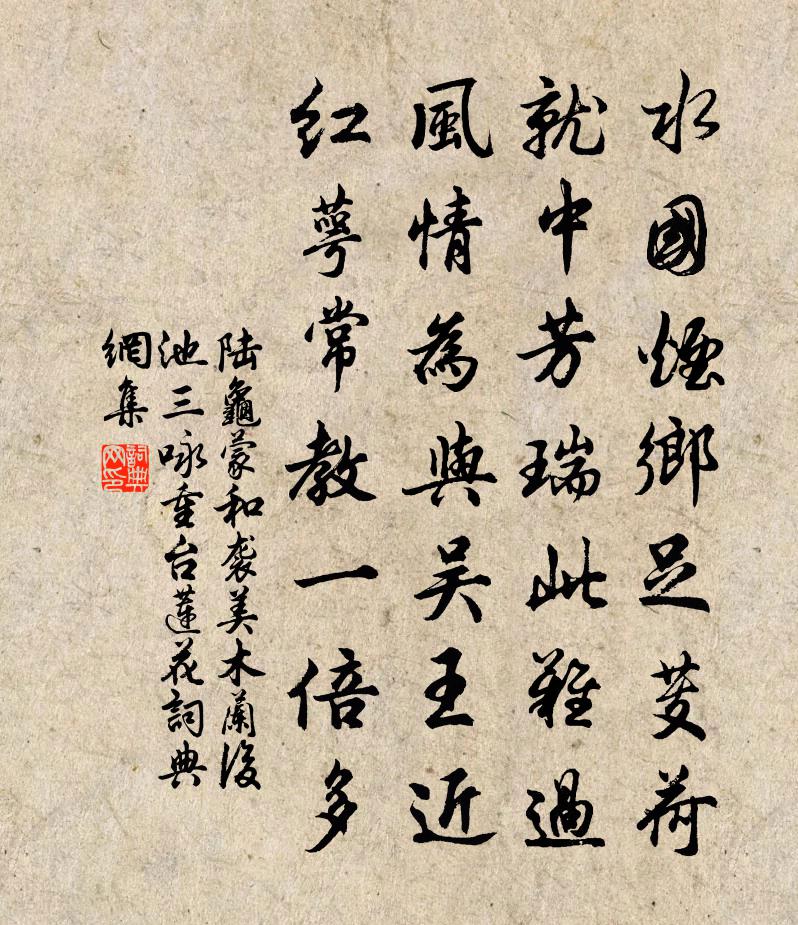 水國煙鄉足芰荷
就中芳瑞此難過
風情為與吳王近
紅萼常教一倍多
陆龜蒙和袭美木蘭後
池三咏重台蓮花詞典
網集
詞典
网印